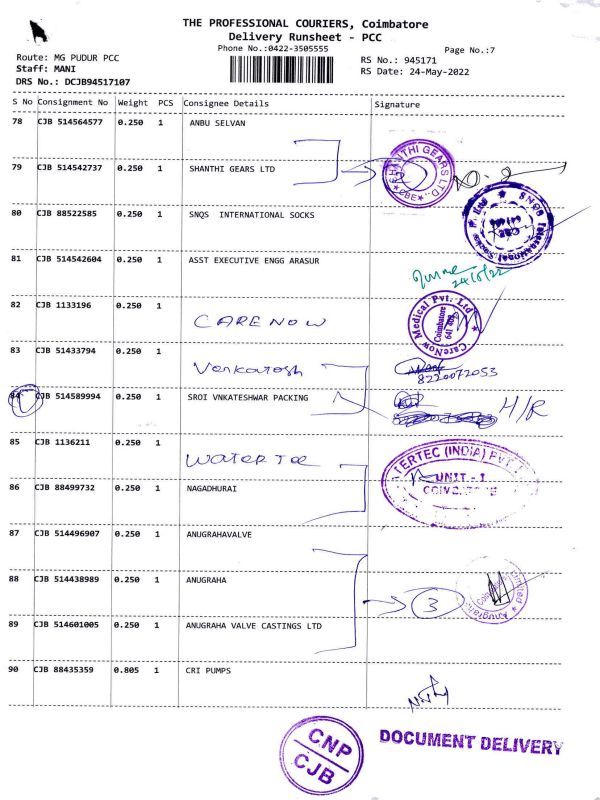 THE PROFESSIONAL COURIERS, Coimbatore
Delivery Runsheet - PCC
Phone No.:0422-3505555
Page No.:7
Route: MG PUDUR PCC
Staff: MANI
DRS No.: DCJB94517107
RS No.: 945171
RS Date: 24-May-2022
S No Consignment No Weight PCS Consignee Details Signature
78 CJB 514564577 0.250 1 ANBU SELVAN
79 CJB 514542737 0.250 1 SHANTHI GEARS LTD
SHANTHI GEARS LTD.
CBE
80 CJB 88522585 0.250 1 SNQS INTERNATIONAL SOCKS
81 CJB 514542604 0.250 1 ASST EXECUTIVE ENGG ARASUR
24/5/22
82 CJB 1133196 0.250 1 CARE NOW
CareNow Medical Pvt. Ltd
Coimbatore
83 CJB 51433794 0.250 1 Venkatesh
8220072053
84 CJB 514589994 0.250 1 SROI VNKATESHWAR PACKING
H/R
85 CJB 1136211 0.250 1 WATER TEC
TERTEC (INDIA) PVT
UNIT - I
86 CJB 88499732 0.250 1 NAGADHURAI
87 CJB 514496907 0.250 1 ANUGRAHAVALVE
88 CJB 514438989 0.250 1 ANUGRAHA
3
89 CJB 514601005 0.250 1 ANUGRAHA VALVE CASTINGS LTD
90 CJB 88435359 0.805 1 CRI PUMPS
CNP
CJB
DOCUMENT DELIVERY